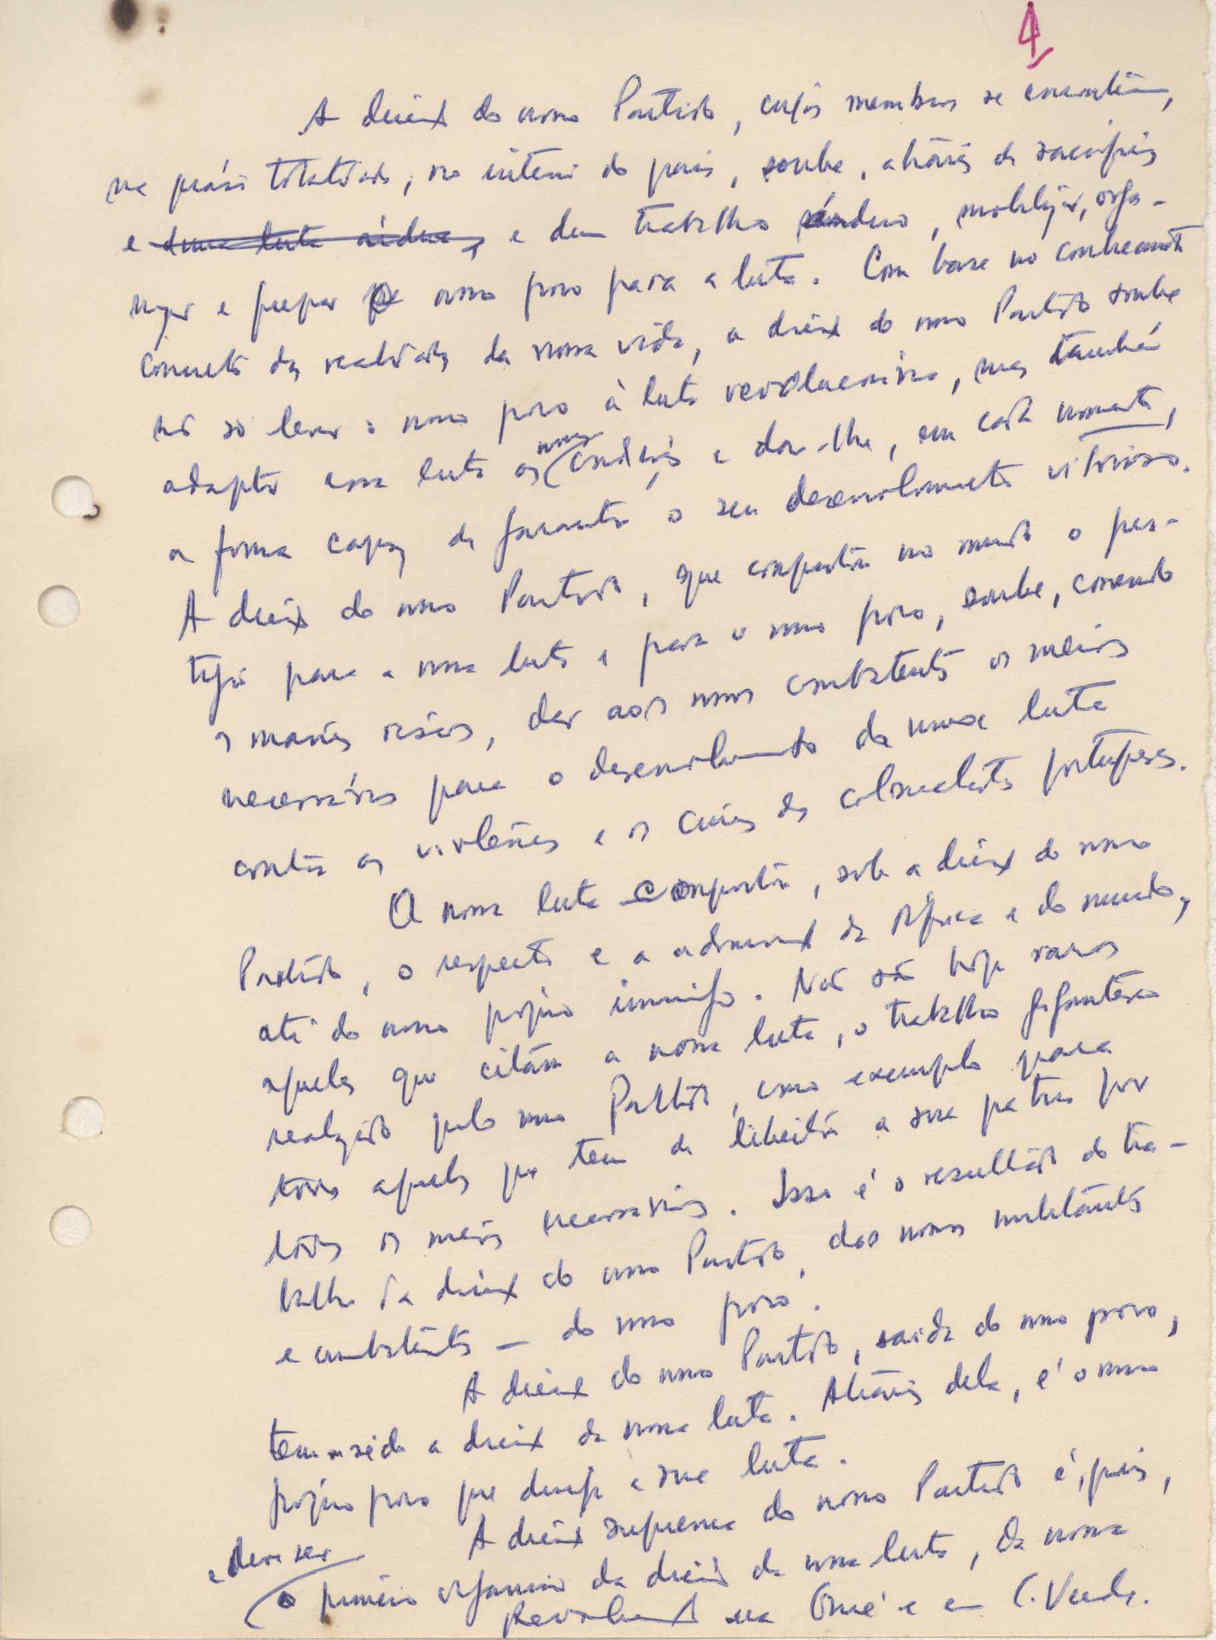 4
A direcç do nosso Partido, cujos membros se encontram,
na quási totalidade, no interior do país, soube, através de sacrifícios
e duma luta árdua, e dum trabalho árduo, mobilizar, orga-
nizar e preparar o nosso povo para a luta. Com base no conhecimento
concreto das realidades da nossa vida, a direcç do nosso Partido soube
não só levar o nosso povo à luta revolucionária, mas também
adaptar essa luta às nossas condições e dar-lhe, em cada momento,
a forma capaz de garantir o seu desenvolvimento vitorioso.
A direcç do nosso Partido, que conquistou no mundo o pres-
tígio para a nossa luta e para o nosso povo, soube, correndo
os maiores riscos, dar aos nossos combatentes os meios
necessários para o desenvolvimento da nossa luta
contra as violências e os crimes dos colonialistas portugueses.
A nossa luta conquistou, sob a direcç do nosso
Partido, o respeito e a admiraç da África e do mundo,
até do nosso próprio inimigo. Não são hoje raros
aqueles que citam a nossa luta, o trabalho gigantesco
realizado pelo nosso Partido, como exemplo para
todos aqueles que tem de libertar a sua pátria por
todos os meios necessários. Isso é o resultado do tra-
balho da direcç do nosso Partido, dos nossos militantes
e combatentes — do nosso povo.
A direcç do nosso Partido, saída do nosso povo,
tem sido a direcç da nossa luta. Através dela, é o nosso
próprio povo que dirige a sua luta.
A direcç suprema do nosso Partido é, pois,
e deve ser
o primeiro organismo da direcç da nossa luta, da nossa
Revoluç na Guiné e em C. Verde.